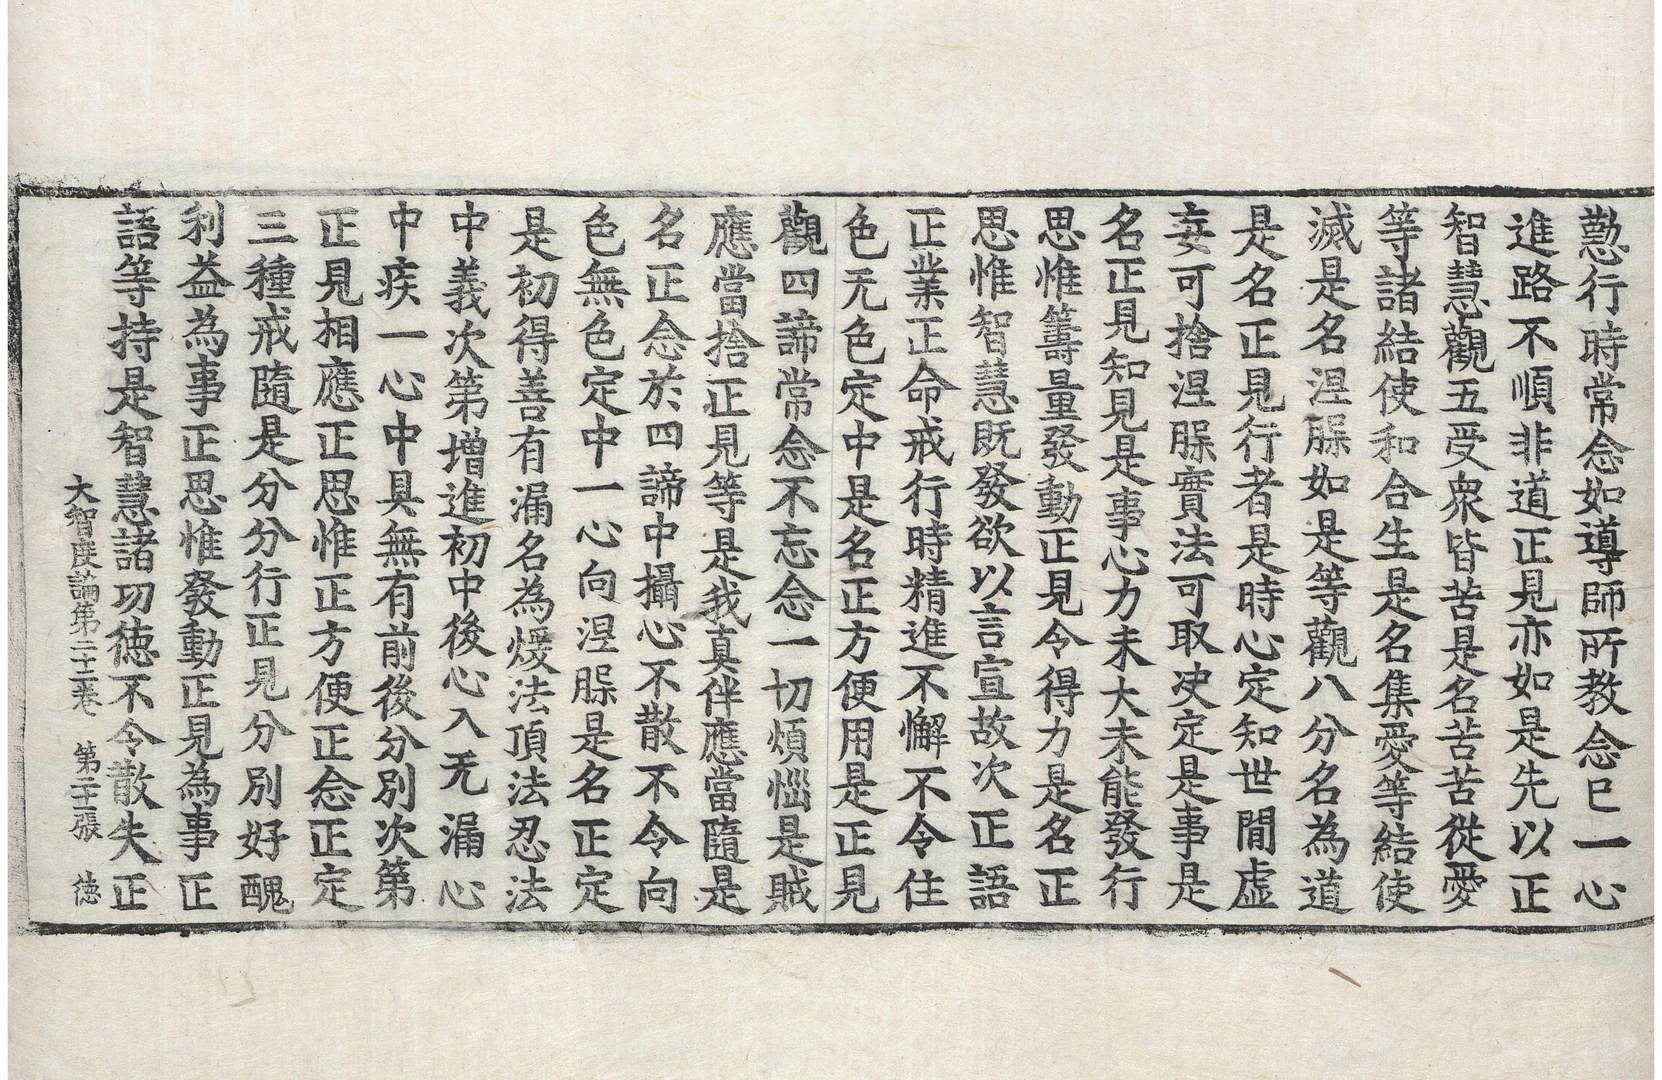 勤行時常念如導師所教念已一心
進路不順非道正見亦如是先以正
智慧觀五受衆皆苦是名苦苦從愛
等諸結使和合生是名集愛等結使
滅是名涅槃如是等觀八分名為道
是名正見行者是時心定知世間虛
妄可捨涅槃實法可取决定是事是
名正見知見是事心力未大未能發行
思惟籌量發動正見令得力是名正
思惟智慧既發欲以言宣故次正語
正業正命戒行時精進不懈不令住
色无色定中是名正方便用是正見
觀四諦常念不忘念一切煩惱是賊
應當捨正見等是我真伴應當隨是
名正念於四諦中攝心不散不令向
色無色定中一心向涅槃是名正定
是初得善有漏名為煖法頂法忍法
中義次第增進初中後心入无漏心
中疾一心中具無有前後分別次第
正見相應正思惟正方便正念正定
三種戒隨是分分行正見分別好醜
利益為事正思惟發動正見為事正
語等持是智慧諸功徳不令散失正
大智度論第二十二卷　第二十二張　徳